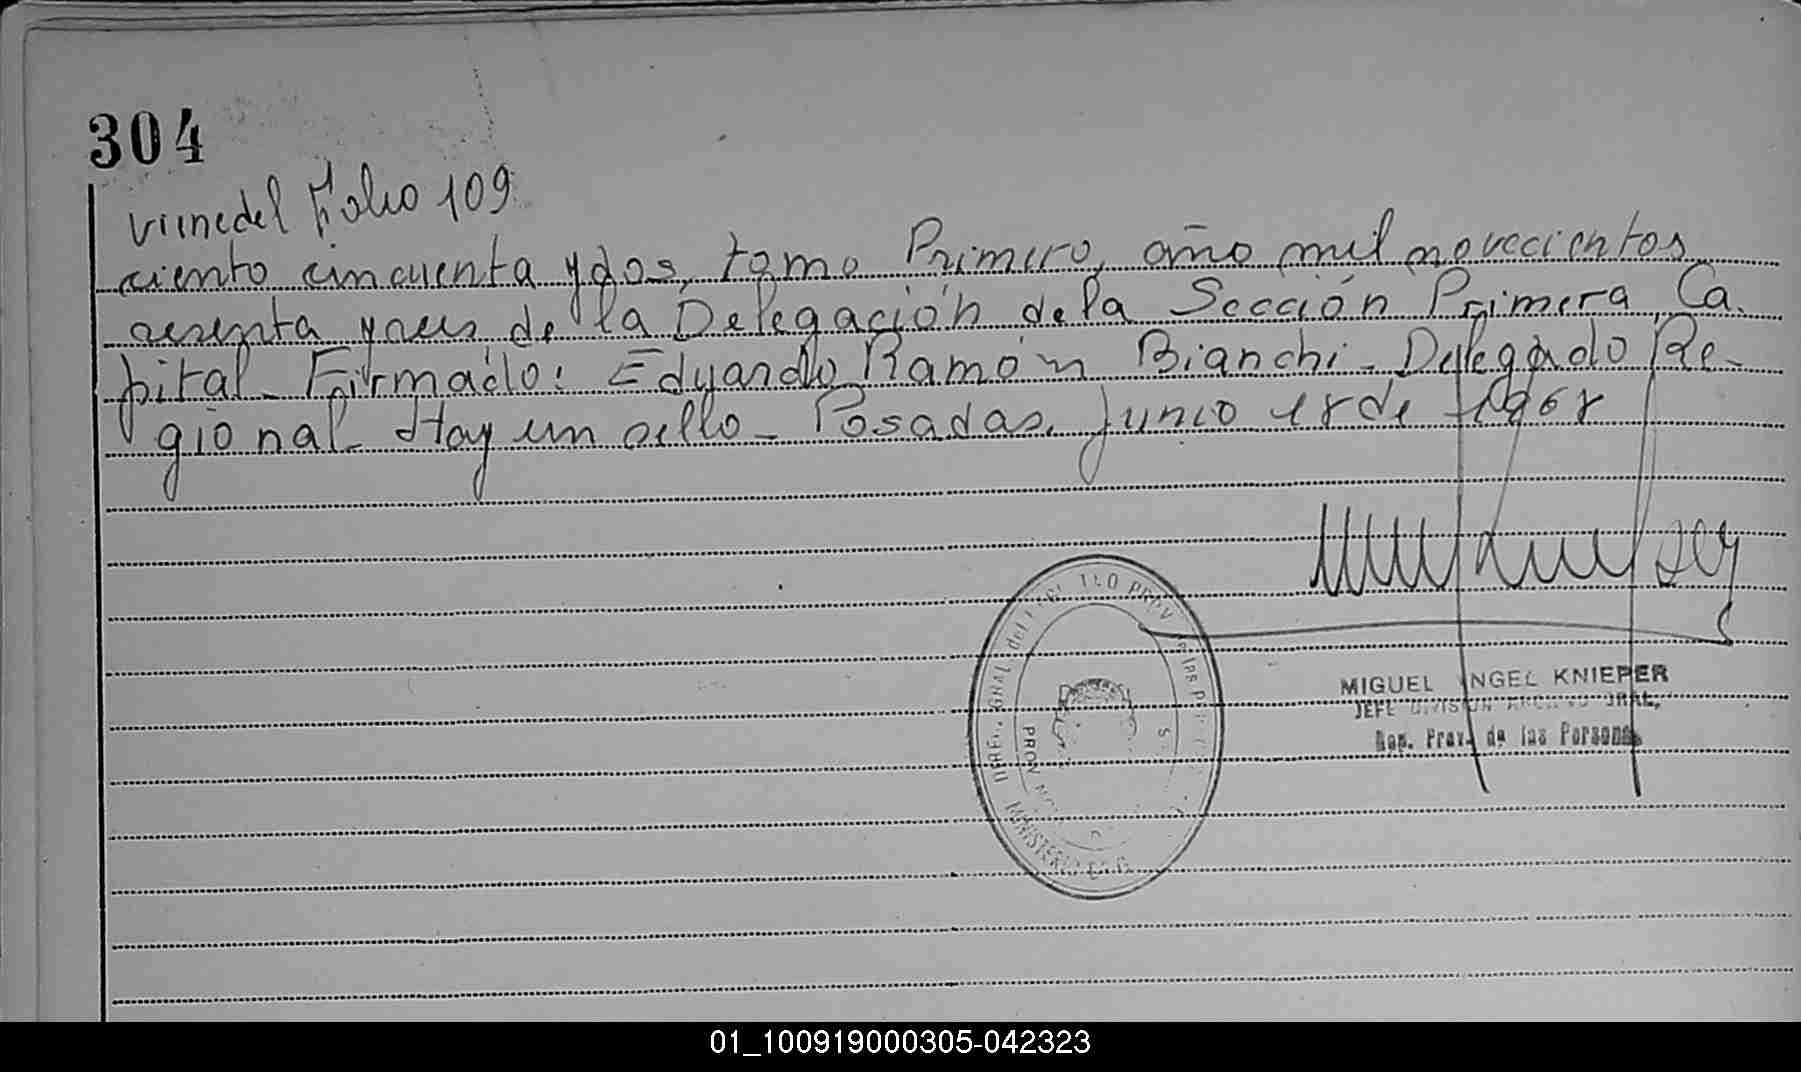 304
viene del Folio 109
ciento cincuenta y dos, tomo Primero, año mil novecientos
sesenta y seis de la Delegación de la Sección Primera, Ca-
pital - Firmado: Eduardo Ramón Bianchi - Delegado Re-
gional - Hay un sello - Posadas, Junio 18 de 1968
MIGUEL ANGEL KNIEPER
JEFE DIVISION ARCHIVO GRAL.
Rep. Prov. de las Personas
PROV
MINISTERIO DE G
01_100919000305-042323